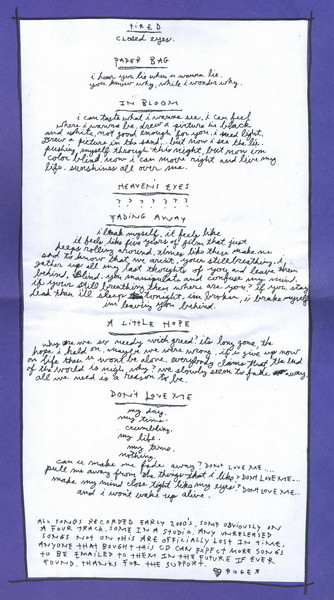 TIRED
closed eyes.
PAPER BAG
i hear you lie when u wanna lie.
you know why, while i wonder why.
IN BLOOM
i can taste what i wanna see, i can feel
where i wanna be. drew a picture in black
and white, not good enough for you, i need light.
drew a picture in the sand... but now i see the lie.
pushing myself through this night, but now im
color blind. now i can move right and live my
life. sunshines all over me.
HEAVENS EYES
? ? ? ? ? ? ? ?
FADING AWAY
i soak myself, it feels like
it feels like five years of film that just
keeps rolling around. times like these make me
sad to know that we arent. youre still breathing, i
gather up all my last thoughts of you and leave them
behind. blind. you manipulate and confuse my mind.
if youre still breathing then where are you? if you stay
dead then ill sleep tonight. im broken, i brake myself
im leaving you behind.
A LITTLE HOPE
why are we so needy with greed? its long gone, the
hope i held on. maybe we were wrong. if u give up now
on life then u wont be alone. everybody claims that the end
of the world is nigh, why? we slowly seem to fade away.
all we need is a reason to be.
DON'T LOVE ME
my day.
my time.
crumbling.
my life.
my time.
nothing.
can u make me fade away? DON'T LOVE ME....
pull me away from the things that i like, DON'T LOVE ME...
make my mind close tight like my eyes? DON'T LOVE ME...
and i wont wake up alive.
ALL SONGS RECORDED EARLY 2000'S, SOME OBVIOUSLY ON
A FOUR TRACK, SOME IN A STUDIO. ANY UNRELEASED
SONGS NOT ON THIS ARE OFFICIALLY LOST IN TIME.
ANYONE THAT BOUGHT THIS CD CAN EXPECT MORE SONGS
TO BE EMAILED TO THEM IN THE FUTURE IF EVER
FOUND. THANKS FOR THE SUPPORT.
♡ ROGER